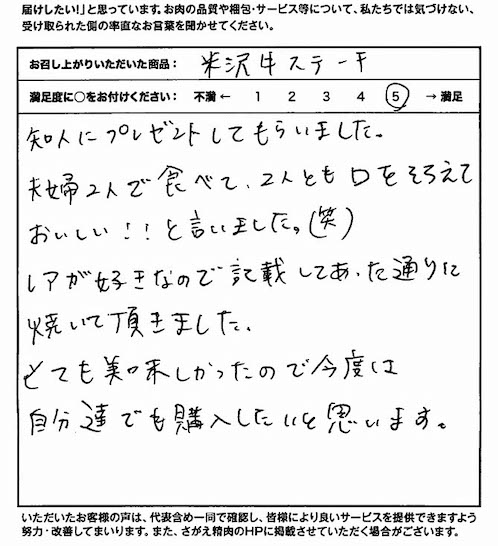 届けしたい!」と思っています。お肉の品質や梱包・サービス等について、私たちでは気づけない、
受け取られた側の率直なお言葉を聞かせてください。
お召し上がりいただいた商品: 米沢牛ステーキ
満足度に○をお付けください: 不満 ← 1 2 3 4 5 → 満足
知人にプレゼントしてもらいました。
夫婦2人で食べて、2人とも口をそろえて
おいしい!!と言いました。(笑)
レアが好きなので記載してあった通りに
焼いて頂きました。
とても美味しかったので今度は
自分達でも購入したいと思います。
いただいたお客様の声は、代表含め一同で確認し、皆様により良いサービスを提供できますよう
努力・改善してまいります。また、さがえ精肉のHPに掲載させていただく場合がございます。